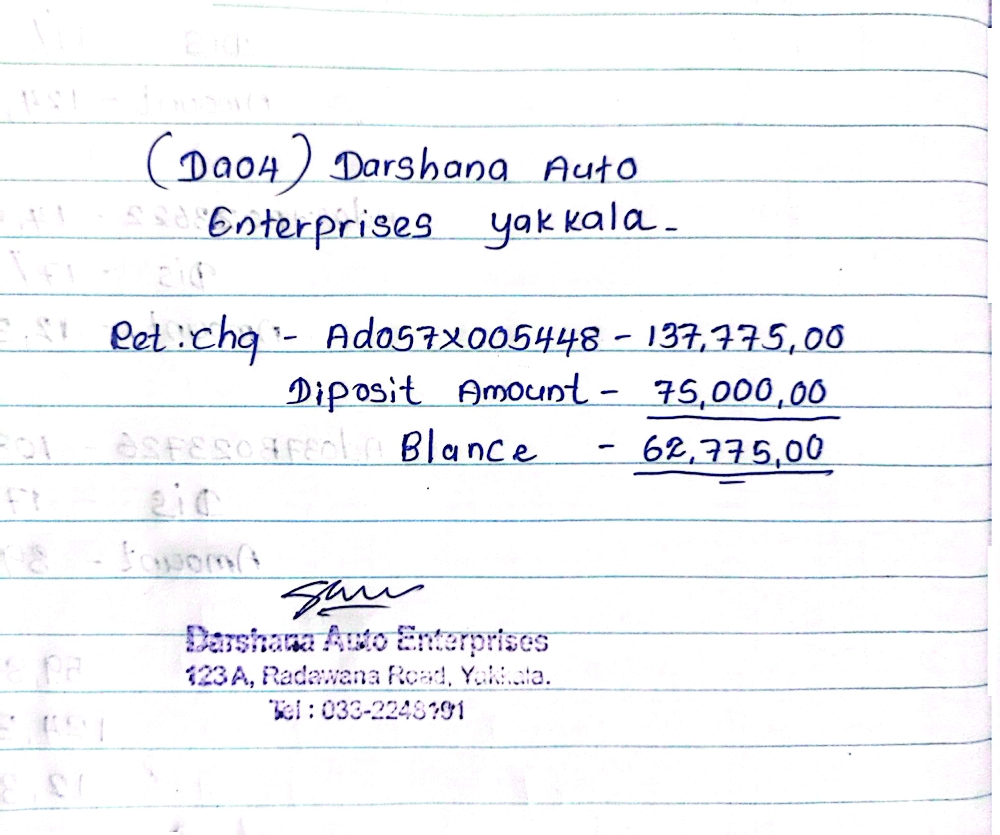 (Da04) Darshana Auto
Enterprises yakkala -
Ret : chq :- Ad057X005448 - 137,775,00
Diposit Amount - 75,000,00
Blance - 62,775,00
Darshana Auto Enterprises
123 A, Radawana Road, Yakkala.
Tel : 033-2248191